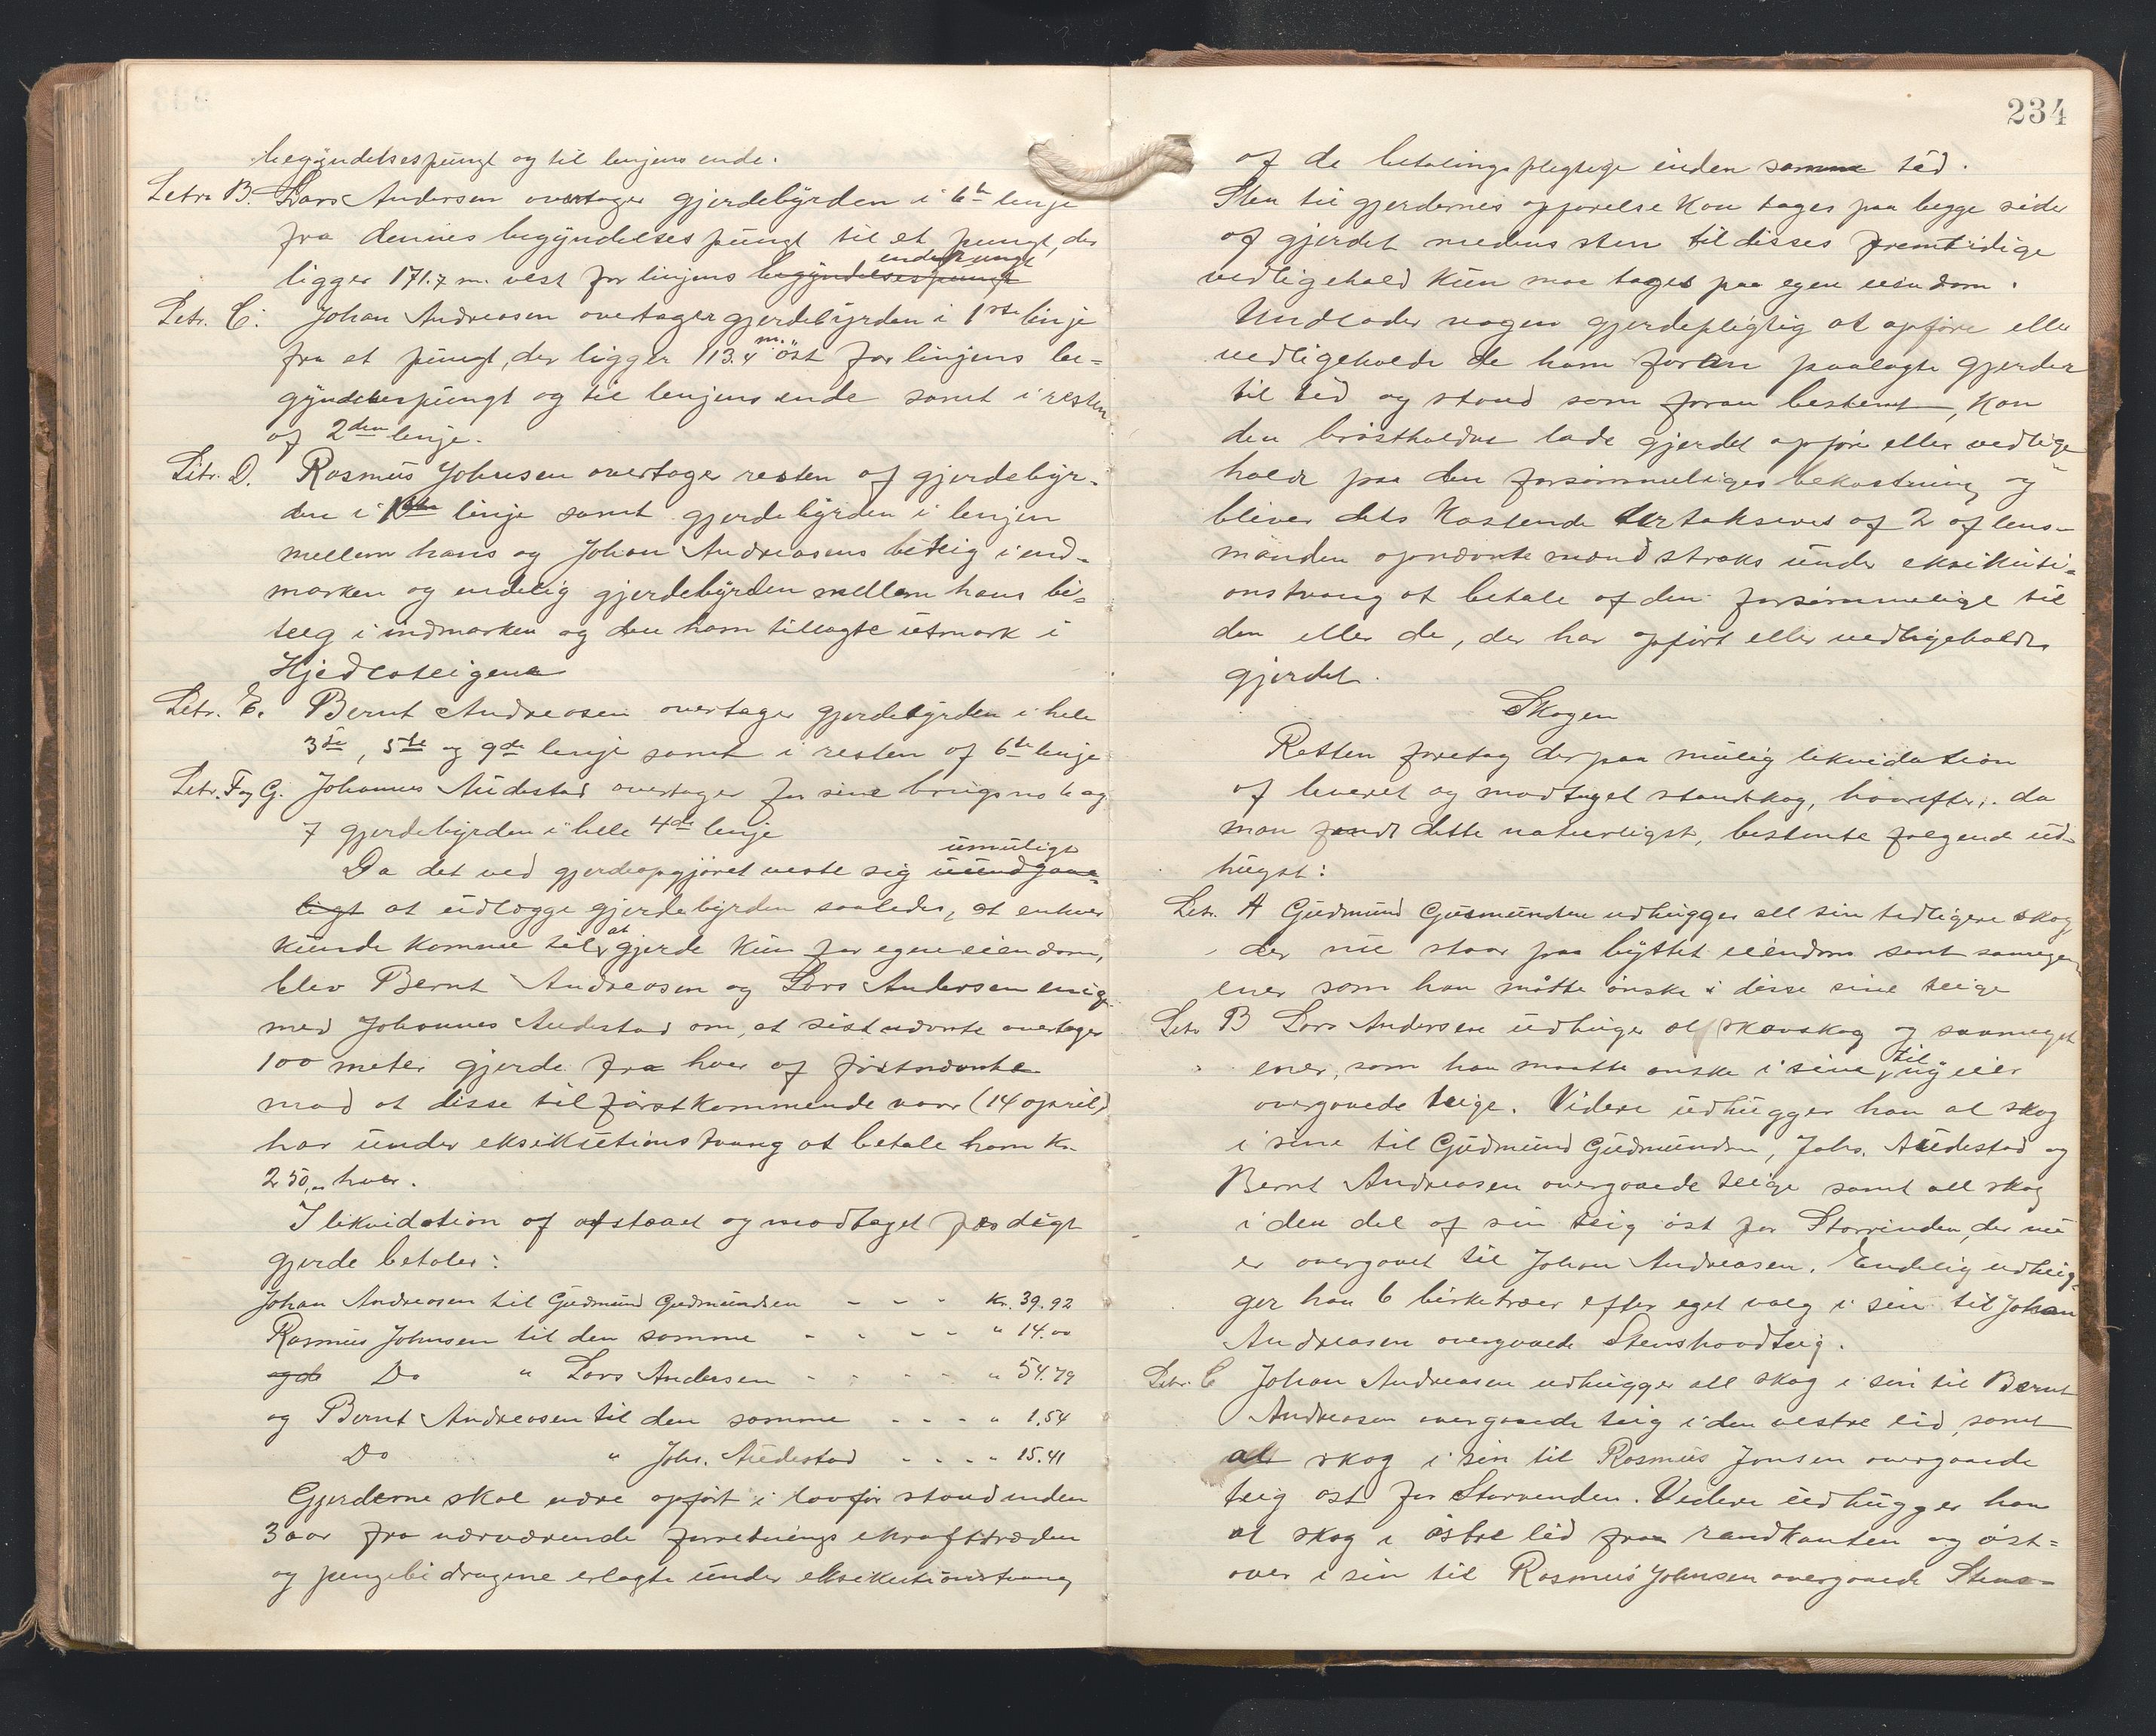 begyndelsespungt og til linjens ende.
Letr. B. Lars Andersen overtager gjerdebyrden i 6te linje
fra dennes begyndelsespungt til et pungt, der
endepungt
ligger 171.7 m. vest for linjens begyndelsespungt
Letr. C. Johan Andreasen overtager gjerdebyrden i 1ste linje
fra et pungt, der ligger 113.4 m. öst for linjens be=
gyndelsespungt og til linjens ende samt i resten
af 2den linje.
Litr. D. Rasmus Johnsen overtager resten af gjerdebyr-
den i 1ste linje samt gjerdebyrden i linjen
mellem hans og Johan Andreasens beteig i ind-
marken og endelig gjerdebyrden mellem hans be-
teeg i indmarken og den ham tillagte utmark i
Hjedlateigene
Letr. E. Bernt Andreasen overtager gjerdebyrden i hele
3die, 5te og 9de linje samt i resten af 6te linje
Letr. F og G. Johannes Audestad overtager for sine brugsno 6 og
7 gjerdebyrden i hele 4de linje
umuligt
Da det ved gjerdeopgjöret viste sig uundgaae-
ligt at udlægge gjerdebyrden saaledes, at enhver
kunde komme til at gjerde kun for egen eiendom,
blev Bernt Andreasen og Lars Andersen enige
med Johannes Audestad om, at sistnævnte overtager
100 meter gjerde fra hver af förstnævnte
mod at disse til förstkommende vaar (14 april)
har under eksikutionstvang at betale ham Kr.
250,00 hver.
I likvidation af afstaaet og modtaget færdigt
gjerde betaler:
Johan Andreasen til Gudmund Gudmundsen - - - Kr. 39.92
Rasmus Johnsen til den samme - - - - " 14.00
og do Do " Lars Andersen - - - - " 54.79
og Bernt Andreasen til den samme - - - " 1.54
Do " Johs. Audestad - - - - 15.41
Gjerderne skal være opfört i lovför stand inden
3 aar fra nærværende forretnings ikrafttræden
og pengebidragene erlagte under eksikutionstvang
234
af de betalingspligtige inden samme tid.
Sten til gjerdernes opförelse kan tages paa begge sider
af gjerdet medens sten til disses fremtidige
vedligehold kun maa tages paa egen eiendom.
Undlader nogen gjerdepligtig at opföre eller
vedligeholde de ham foran paalagte gjerder
til tid og stand som foran bestemt, kan
den bröstholdne lade gjerdet opföre eller vedlige
holde paa den forsömmeliges bekostning og
bliver dets kostende at taksere af 2 af lens-
manden opnævnte mænd straks under eksikuti-
onstvang at betale af den forsömmelige til
den eller de, der har opfört eller vedligeholdt
gjerdet.
Skogen
Retten foretog derpaa mulig likvidation
af leveret og modtaget standskog, hvorefter, da
man fandt dette naturligst, bestemte fölgende ud-
hugst:
Letr. A Gudmund Gudmundsen udhugger all sin tidligere skog,
der nu staar paa byttet eiendom samt saameget
ener som han måtte önske i disse sine teige
Letr B Lars Andersen udhuger al skavskog og saameget
ener, som han maatte önske i sine, til ny eier
overgaaede teige. Videre udhugger han al skog
i sine til Gudmund Gudmundsen, Johs. Audestad og
Bernt Andreasen overgaaede teige samt all skog
i den del af sin teig öst for Storrinden, der nu
er overgaaet til Johan Andreasen. Endelig udhug-
ger han 6 birketræer efter eget valg i sin til Johan
Andreasen overgaaede Stenshovdteig.
Letr. C Johan Andreasen udhugger all skog i sin til Bernt
Andreasen overgaaede teig i den vestre lid, samt
all skog i sin til Rasmus Jonsen overgaaede
teig öst for Storrenden. Videre udhugger han
al skog i östre lid fra randkanten og öst=
over i sin til Rasmus Johnsen overgaaede Stens-